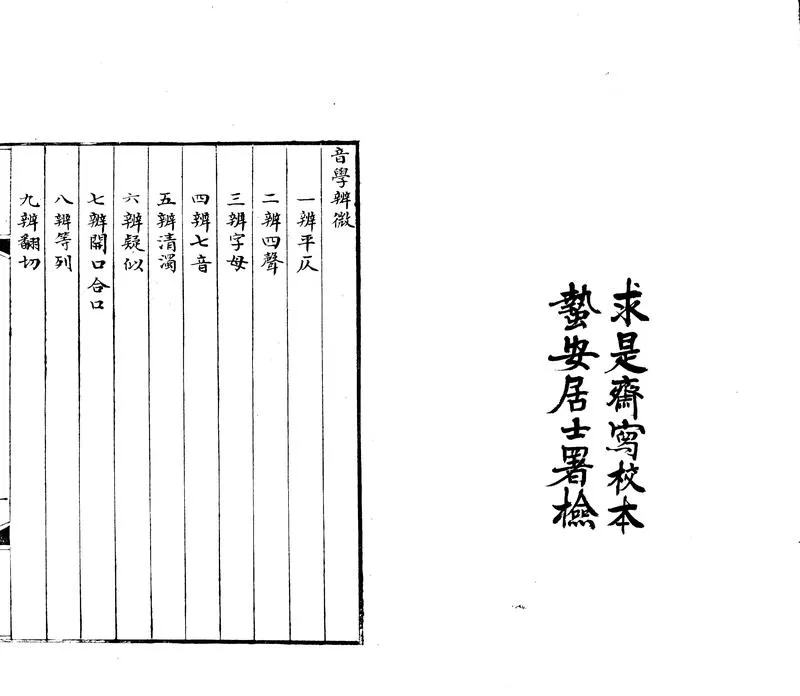 求是齋寫校本
蟄安居士署檢
音學辨微
一辨平仄
二辨四聲
三辨字母
四辨七音
五辨清濁
六辨疑似
七辨開口合口
八辨等列
九辨翻切